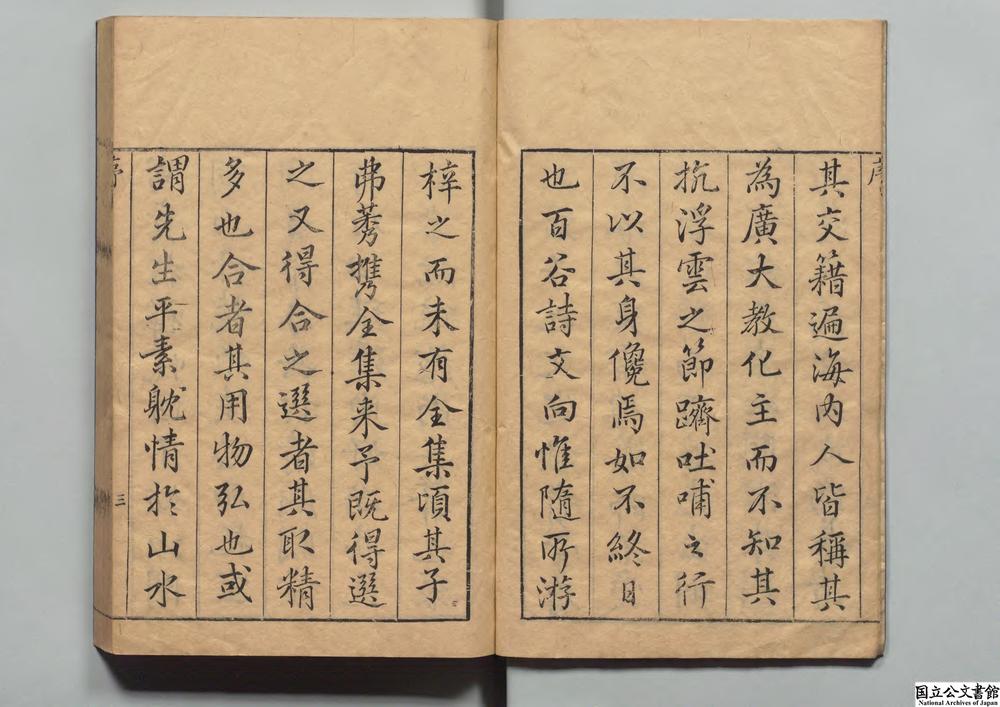 其交籍遍海內人皆稱其
為廣大教化主而不知其
抗浮雲之節躋吐哺之行
不以其身儳焉如不終日
也百谷詩文向惟隨所游
梓之而未有全集頃其子
弗莠携全集来予既得選
之又得合之選者其取精
多也合者其用物弘也或
謂先生平素躭情於山水
三
国立公文書館
National Archives of Japan